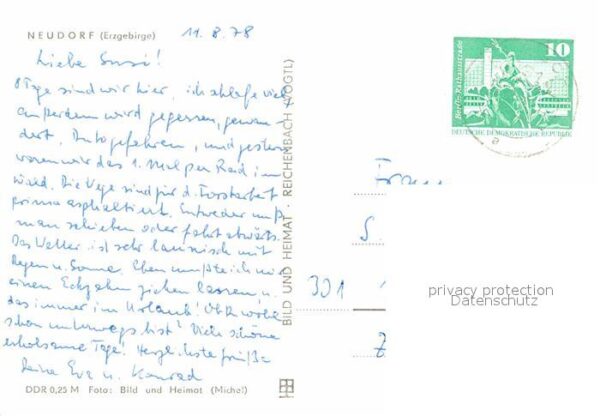 NEUDORF (Erzgebirge)
11.8.78
Liebe Susi!
8 Tage sind wir hier, ich schlafe viel,
außerdem wird gegessen, gewan-
dert, Autogefahren, und gestern
waren wir das 1. Mal per Rad im
Wald. Die Wege sind für d. Forstarbeit
prima asphaltiert. Entweder muß
man schieben oder fährt abwärts.
Das Wetter ist sehr launisch mit
Regen u. Sonne. Eben mußte ich mir
einen Eckzahn ziehen lassen, u.
das immer im Urlaub! Ob Du wohl
schon unterwegs bist? Viele schöne
erholsame Tage! Herzl. liebe Grüße
Deine Eva u. Konrad
DDR 0,25 M Foto: Bild und Heimat (Michel)
BILD UND HEIMAT · REICHENBACH (VOGTL)
10
Berlin, Rathausstraße
DEUTSCHE DEMOKRATISCHE REPUBLIK
S.
301
Z
privacy protection
Datenschutz